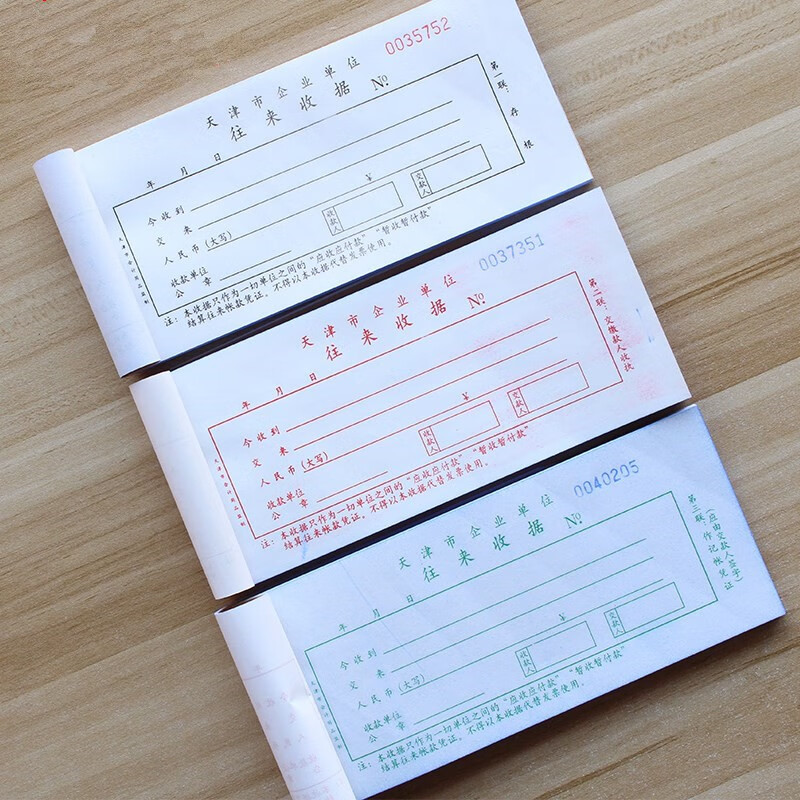 0035752
天津市企业单位
往来收据 №
年 月 日
今收到
交 来
人民币(大写)
¥
收款人
交款人
收款单位
公 章
注:本收据只作为一切单位之间的"应收应付款""暂收暂付款"
结算往来帐款凭证,不得以本收据代替发票使用。
第一联:存根
0037351
天津市企业单位
往来收据 №
年 月 日
今收到
交 来
人民币(大写)
¥
收款人
交款人
收款单位
公 章
注:本收据只作为一切单位之间的"应收应付款""暂收暂付款"
结算往来帐款凭证,不得以本收据代替发票使用。
第二联:交缴款人收执
0040205
天津市企业单位
往来收据 №
年 月 日
今收到
交 来
人民币(大写)
¥
收款人
交款人
收款单位
公 章
注:本收据只作为一切单位之间的"应收应付款""暂收暂付款"
结算往来帐款凭证,不得以本收据代替发票使用。
第三联:作记帐凭证
(应由交款人签字)